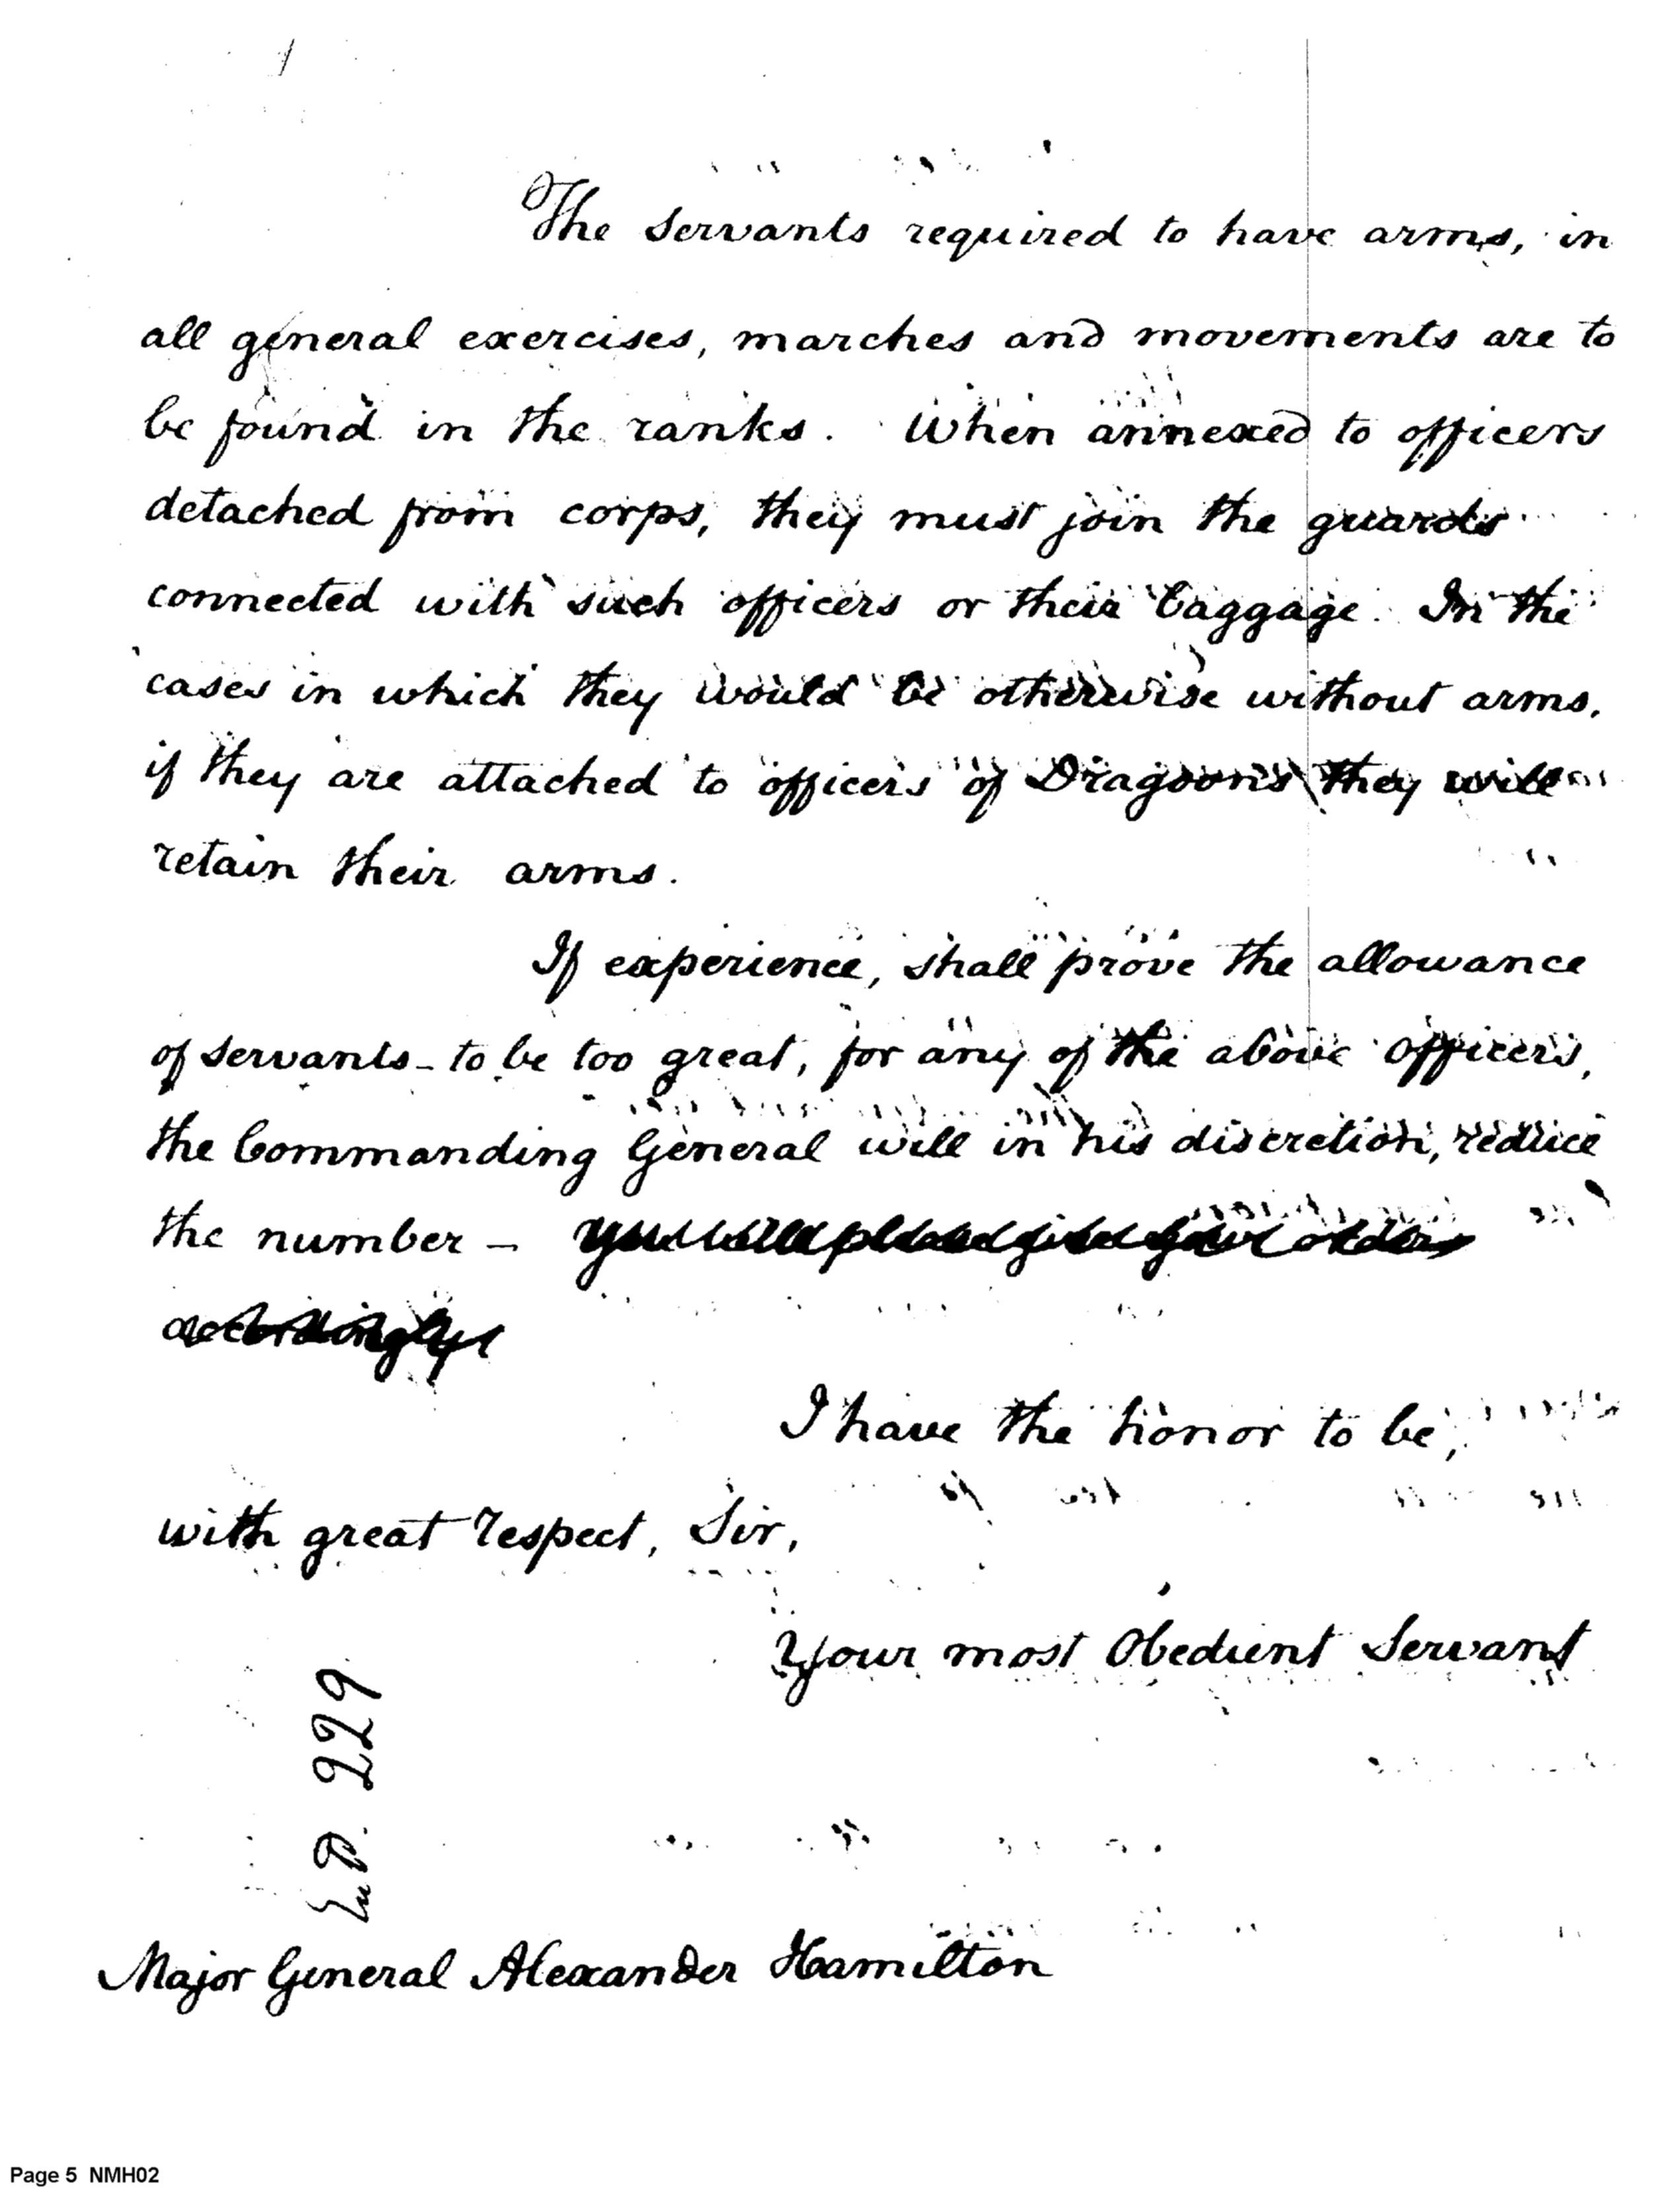 The Servants required to have arms, in
all general exercises, marches and movements are to
be found in the ranks. When annexed to officers
detached from corps, they must join the guards
connected with such officers or their baggage. In the
cases in which they would be otherwise without arms,
if they are attached to officers of Dragoons they will
retain their arms.
If experience, shall prove the allowance
of servants - to be too great, for any of the above officers,
the Commanding General will in his discretion, reduce
the number - you will please give your orders
accordingly
I have the honor to be,
with great respect, Sir,
Your most Obedient Servant
229
Major General Alexander Hamilton
Page 5 NMH02